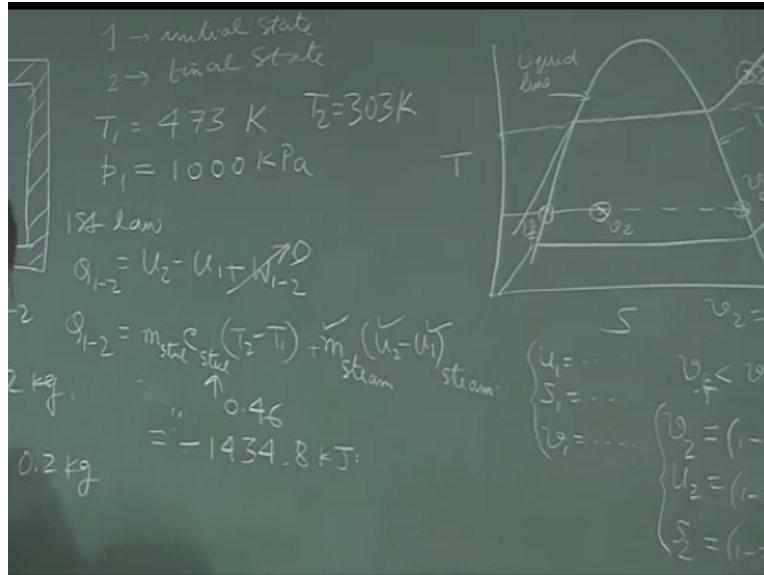 1 → initial state
2 → final state
T₁ = 473 K T₂ = 303 K
p₁ = 1000 kPa
1st law
Q₁₋₂ = U₂ - U₁ + W₁₋₂ 0
-2
Q₁₋₂ = m steel C steel (T₂ - T₁) + m steam (u₂ - u₁) steam
2 kg
0.46
= -1434.8 kJ
0.2 kg
Liquid
line
T
v₂
S
v₂ =
u₁ = .....
s₁ = ...
v₁ = .....
v_f < v
v₂ = (1-
u₂ = (1-
s₂ = (1-